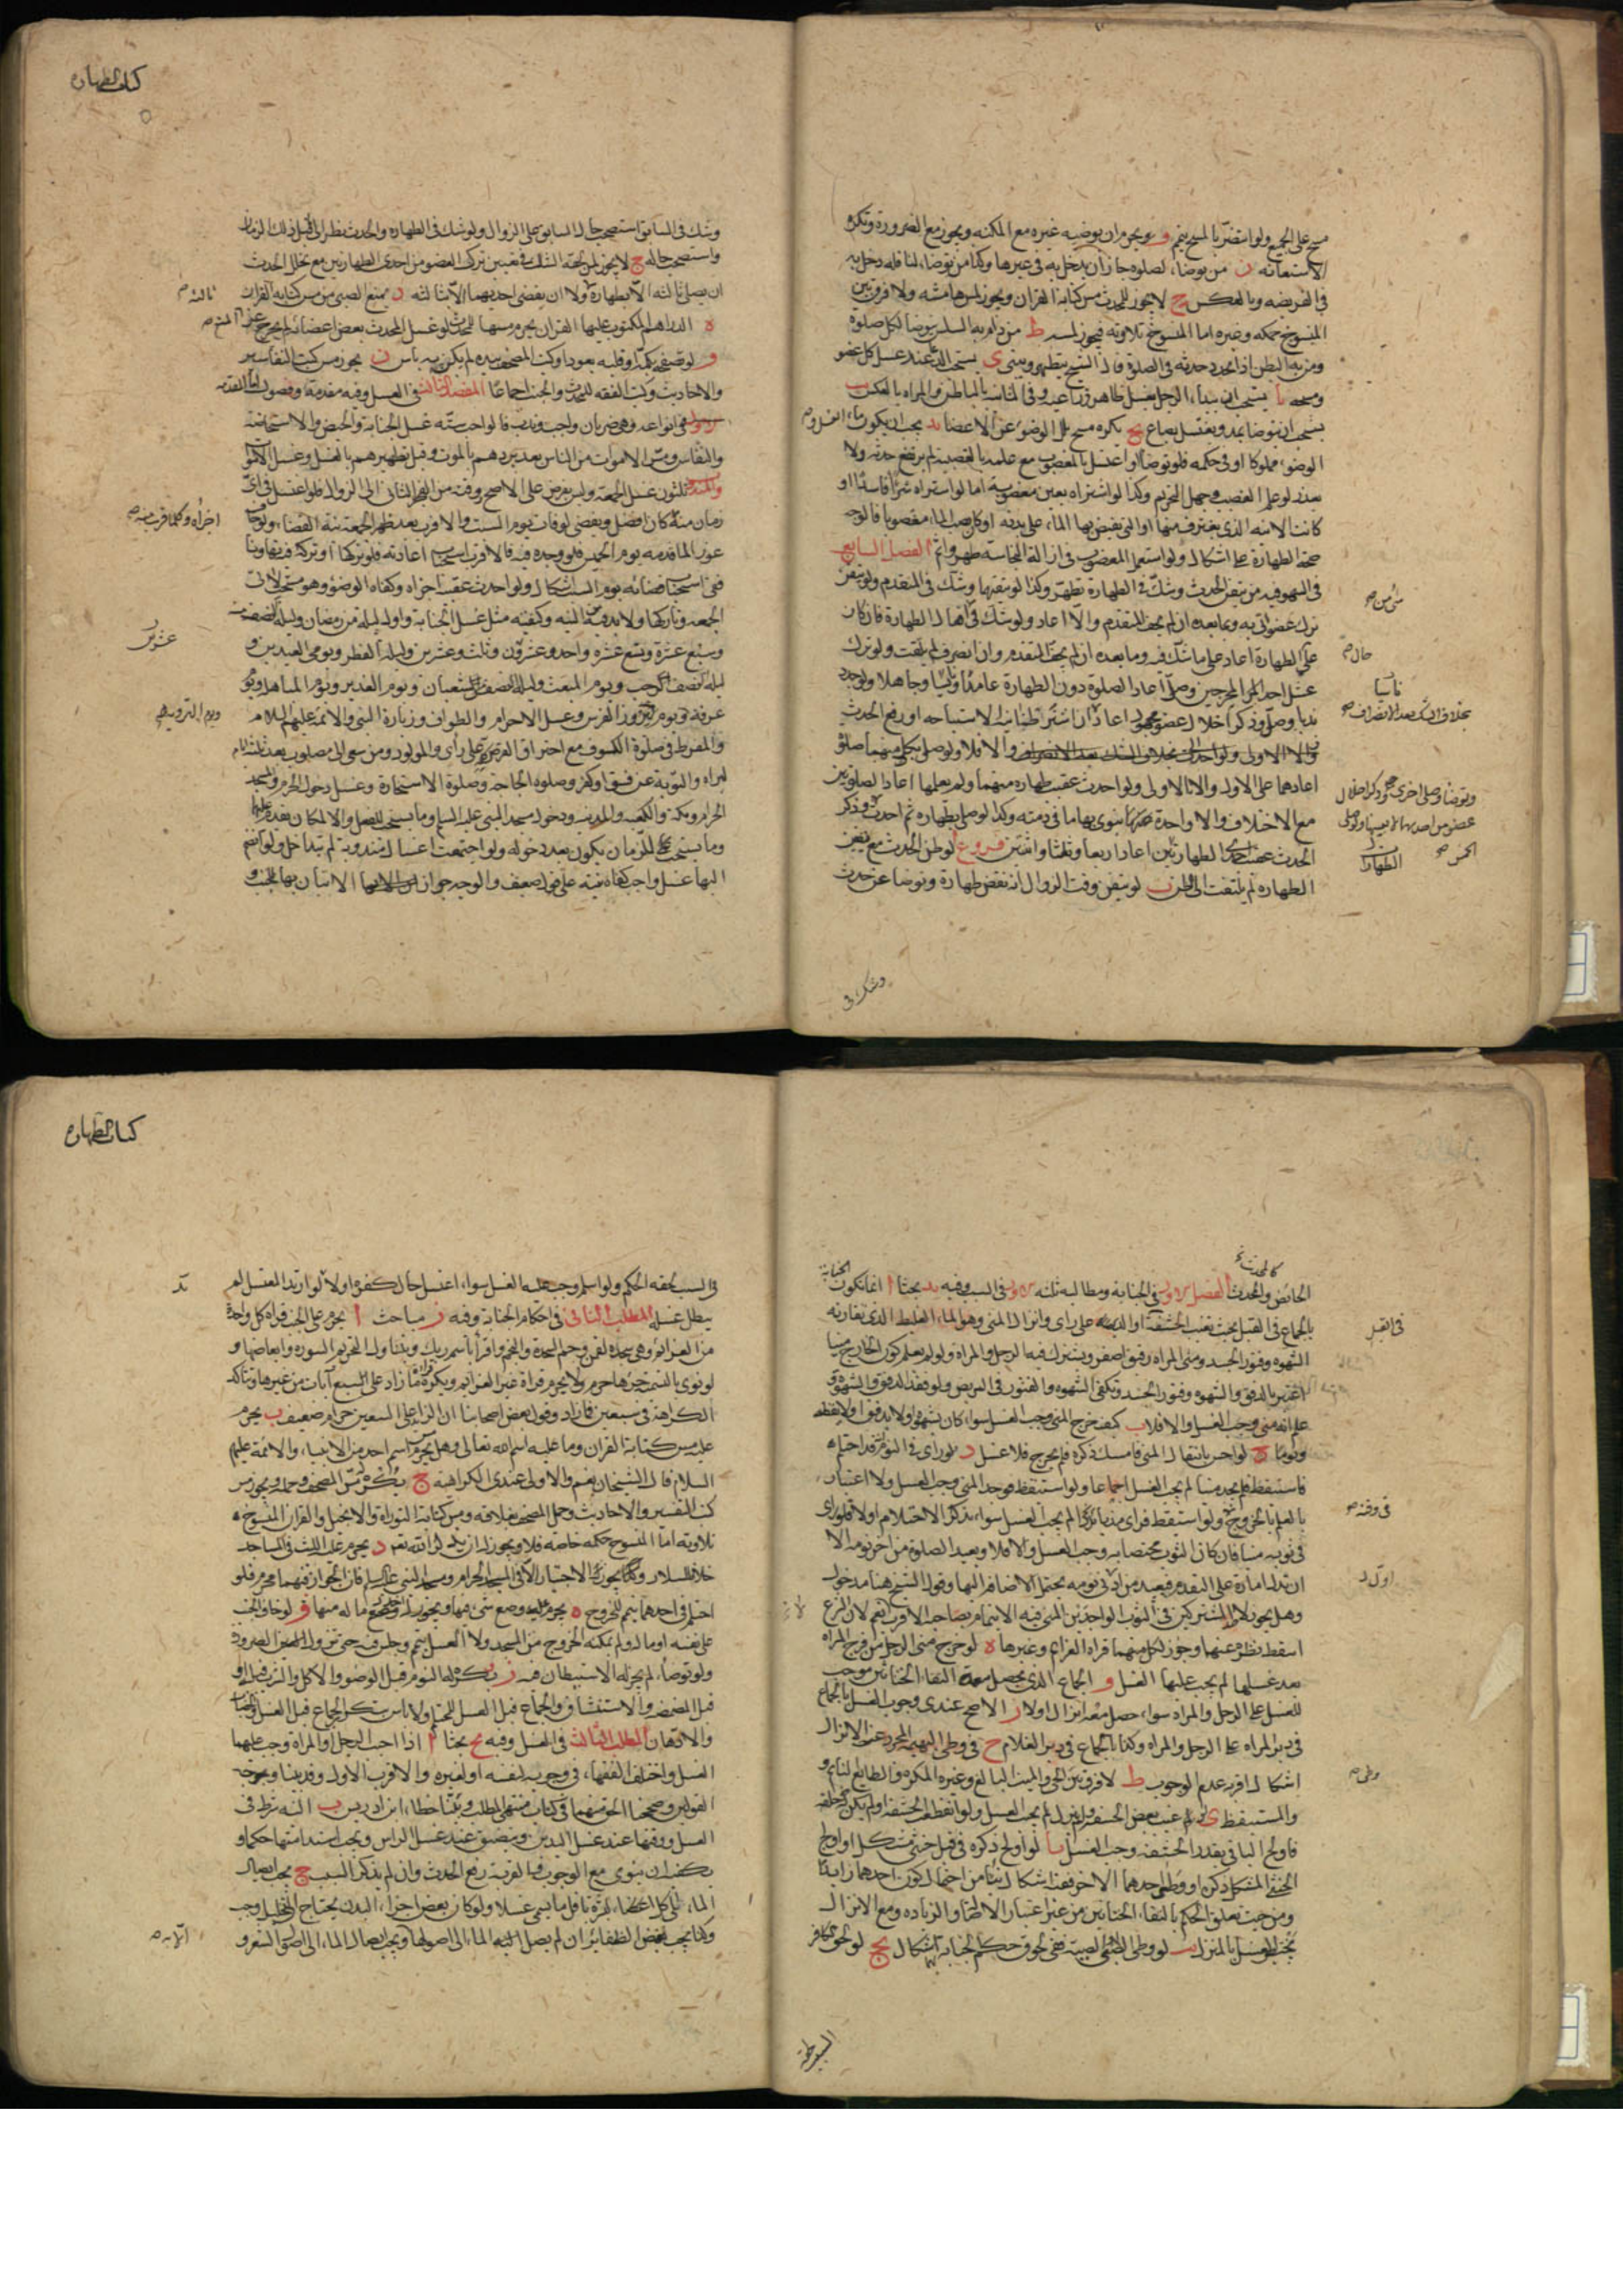 كتاب الطهارة
مسح على الجميع ولو استضر بالمسح يتيم و ويحرم ان يوضيه غيره مع المكنة ويجوز مع الضرورة وتكره
الاستعانة ز من توضأ لصلوة جاز ان يدخل به في غيرها وكذا من توضأ لنافلة دخل به
في الفريضة وبالعكس ح لا يجوز للمحدث مس كتابة القران ويجوز لمس هامشه ولا فرق بين
المنسوخ حكمه وغيره اما المنسوخ تلاوته فيجوز لمسه ط من دام به السلس يتوضأ لكل صلوة
ومن به البطن اذا تجدد حدثه في الصلوة قال الشيخ يتطهر ويبني ى يستحب الدعاء عند غسل كل عضو
ومسحه يا يستحب ان يبدأ الرجل بغسل ظاهر ذراعيه وفي الثانية بالباطن والمراة بالعكس يب
يستحب ان يتوضأ بمد ويغتسل بصاع يج يكره مسح بلل الوضوء عن الاعضا يد يجب ان يكون ماء الغسل و
الوضوء مملوكا او في حكمه فلو توضأ او اغتسل بالمغصوب مع علمه بالغصبية لم يرتفع حدثه ولا
يعذر لو علم الغصب وجهل التحريم وكذا لو اشتراه بعين مغصوبة اما لو استراه شراء فاسدا او
كانت الانية الذي يغترف منها او التي تفيض بها الماء على بدنه او كان مصب الماء مغصوبا فالوجه
صحة الطهارة على اشكال ولو استعمل المغصوب في ازالة النجاسة طهر واثم الفصل السابع
في السهو فيه من تيقن الحدث وشك في الطهارة تطهر وكذا لو تيقنهما وشك في المتقدم ولو تيقن
ترك عضو اتى به وبما بعده ان لم يجف المتقدم والا اعاد ولو شك في افعال الطهارة فان كان
على الطهارة اعاد على ما شك فيه وما بعده ان لم يجف المتقدم وان انصرف لم يلتفت ولو ترك
غسل احد المخرجين وصلى اعاد الصلوة دون الطهارة عامدا وناسيا وجاهلا ولو جدد
ندبا وصلى وذكر اخلال عضو مجهول اعاد ان اشترطنا نية الاستباحة او رفع الحدث
والا الاولى ولو احدث بخلاف الشك بعد الانصراف والا فلا ولو صلى بكل منهما صلوة
اعادهما على الاول والا فالاولى ولو احدث عقيب طهارة منهما ولم يعلمها اعاد الصلوتين
مع الاختلاف والا واحدة ينوي بها ما في ذمته وكذا لو صلى بطهارة ثم احدث وذكر
الحدث عقيب احدى الطهارتين اعاد اربعا وثلثا واثنتين فروع ا لو ظن الحدث مع تيقن
الطهارة لم يلتفت الى الظن ب لو تيقن وقت الزوال انه نقض طهارة وتوضأ عن حدث
حال
ناسيا
بخلاف الشك بعد الانصراف
وتوضأ وصلى اخرى ثم ذكر اخلال
عضو من احديهما
الخمس
الطهارات
وشك في
وشك في السابق استصحب حال السابق على الزوال ولو شك في الطهارة والحدث نظر الى قبل ذلك الزمان
واستصحب حاله ج لا يجوز لمن لحقه الشك في تعيين ترك العضو من احدى الطهارتين مع تخلل الحدث
ان يصلي ثالثة الا بطهارة ولا ان يقضي احديهما الا بثالثة د يمنع الصبي من مس كتابة القران
ه الدراهم المكتوب عليها القران يحرم مسها للمحدث لو غسل المحدث بعض اعضائه لم يخرج عن
و لو تصفحه بكمه او قلبه بعود او كتب المصحف بيده لم يكن به باس ز يجوز مس كتب التفاسير
والاحاديث وكتب الفقه للمحدث والجنب اجماعا المقصد الثالث في الغسل وفيه مقدمة وفصول اما المقدمة
ففي انواعه وهي ضربان واجب وندب فالواجب ستة غسل الجنابة والحيض والاستحاضة
والنفاس ومس الاموات من الناس بعد بردهم بالموت وقبل تطهيرهم بالغسل وغسل الاموات
والمندوب ثلثون غسل الجمعة وليس بفرض على الاصح ووقته من الفجر الثاني الى الزوال فلو اغتسل في اي
زمان منه كان افضل ويقضى لو فات يوم السبت والاقرب بعد ظهر الجمعة نية القضاء ولو خاف
عوز الماء قدمه يوم الخميس فلو وجده فيه فالاقرب استحباب اعادته فلو تركها او تركه تهاونا
ففي استحباب قضائه يوم السبت اشكال ولو احدث عقيبه اجزاه وكفاه الوضوء وهو مستحب لاتي
الجمعة وتاركها ولا بد فيه من النية وكيفيته مثل غسل الجنابة واول ليلة من رمضان وليلة النصف منه
وسبع عشرة وتسع عشرة واحد وعشرين وثلث وعشرين وليلة الفطر ويومي العيدين و
ليلة النصف من رجب ويوم المبعث وليلة النصف من شعبان ويوم الغدير ويوم المباهلة ويوم
عرفة ويوم نيروز الفرس وغسل الاحرام والطواف وزيارة النبي والائمة عليهم السلام
والمفرط في صلوة الكسوف مع احتراق القرص على راي والمولود ومن سعى الى مصلوب بعد ثلثة ايام
ليراه والتوبة عن فسق او كفر وصلوة الحاجة وصلوة الاستخارة وغسل دخول الحرم والمسجد
الحرام ومكة والكعبة والمدينة ودخول مسجد النبي عليه السلام وما يستحب للفعل والمكان يقدم عليهما
وما يستحب للزمان يكون بعد دخوله ولو اجتمعت اغسال مندوبة لم تتداخل ولو انضم
اليها غسل واجب كفاه نيته على قول ضعيف والوجه جواز الاتيان بها للجنب و
اجزاه وكلما قرب منه
عشرين
ويوم التروية
كتاب الطهارة
الحائض والمحدث الفصل الاول في الجنابة ومطالبه ثلثة الاول في السبب وفيه يد بحثا ا انما تكون الجنابة
بالجماع في القبل بحيث تغيب الحشفة او الدبر على راي وانزال المني وهو الماء الغليظ الذي تقارنه
الشهوة وفتور الجسد ومني المراة رقيق اصفر ويشترك فيه الرجل والمراة ولو لم يعلم كون الخارج منيا
اعتبر بالدفق والشهوة وفتور الجسد وتكفي الشهوة والفتور في المريض ولو فقد الدفق والشهوة و
علم انه مني وجب الغسل والا فلا ب كيف خرج المني وجب الغسل سواء كان بشهوة او لا بدفق او لا يقظة
ونوما ج لو احس بانتقال المني فامسك ذكره فلم يخرج فلا غسل د لو راى في النوم انه قد احتلم
فاستيقظ فلم يجد منيا لم يجب الغسل اجماعا ولو استيقظ فوجد المني وجب الغسل ولا اعتبار
بالعلم بالخروج ولو استيقظ فراى مذيا لم يجب الغسل سواء تذكر الاحتلام او لا فلو راى
في ثوبه منيا فان كان الثوب مختصا به وجب الغسل والا فلا ويعيد الصلوة من اخر نومه الا
ان تدل امارة على التقدم فيعيد من ادنى نومه يحتمل الاضافة اليها وقول الشيخ هنا مدخول
وهل يجوز للمشتركين في الثوب الواحدين المني فيه الائتمام بصاحبه الاقرب نعم لان الشرع
اسقط نظره عنهما وجوز لكل منهما قراة العزائم وغيرها ه لو خرج مني الرجل من فرج المراة
بعد غسلها لم يجب عليها الغسل و الجماع الذي يحصل معه التقاء الختانين موجب
للغسل على الرجل والمراة سواء حصل معه انزال او لا ز الاصح عندي وجوب الغسل بالجماع
في دبر المراة على الرجل والمراة وكذا بالجماع في دبر الغلام ح في وطي البهيمة المجرد عن الانزال
اشكال اقربه عدم الوجوب ط لا فرق بين الحي والميت البالغ وغيره المكره والطايع النايم و
والمستيقظ ى لو غيب بعض الحشفة ولم ينزل لم يجب الغسل ولو انقطعت الحشفة او لم تكن له خلقة
فاولج الباقي بقدر الحشفة وجب الغسل يا لو اولج ذكره في قبل خنثى مشكل او اولج
الخنثى المشكل ذكره او وطي احدهما الاخر ففيه اشكال ينشأ من احتمال كون احدهما زايدا
ومن حيث تعلق الحكم بالتقاء الختانين من غير اعتبار الاصالة والزيادة ومع الانزال
يجب الغسل بالمنزل يب لو وطي الصبي الصبية ففي لحوق حكم الجنابة بهما اشكال يج لو لحق الكافر
في القبل
وطي
في السبب لحقه الحكم ولو اسلم وجب عليه الغسل سواء اغتسل حال كفره او لا لو ارتد المغتسل لم
يبطل غسله المطلب الثاني في احكام الجنابة وفيه ز مباحث ا يحرم على الجنب قراة كل واحدة
من العزائم وهي سجدة لقمن وحم السجدة والنجم واقرا باسم ربك ويتناول التحريم السورة وابعاضها و
لو نوى بالتسمية جزءها حرم ولا يحرم قراة غير العزائم ويكره ما زاد على السبع آيات من غيرها وتتاكد
الكراهة في سبعين فما زاد وقول بعض اصحابنا ان الزايد على السبعين حرام ضعيف ب يحرم
عليه مس كتابة القران وما عليه اسم الله تعالى وهل يحرم مس اسم احد من الانبياء والائمة عليهم
السلام قال الشيخان نعم والاولى عندي الكراهية ج يكره مس المصحف وحمله ويجوز مس
كتب التفسير والاحاديث وحمل المصحف بغلافه ومس كتابة التوراة والانجيل والقران المنسوخ
تلاوته اما المنسوخ حكمه خاصة فلا ويجوز له ان يذكر الله تعالى د يحرم عليه اللبث في المساجد
خلافا لسلار وكذا يجوز له الاجتياز الا في المسجد الحرام ومسجد النبي عليه السلم فان الجواز فيهما محرم فلو
احتلم في احدهما يتيمم للخروج ه يحرم عليه وضع شئ فيها ويجوز له اخذ ما له منها و لو خاف الجنب
على نفسه او ماله ولم يمكنه الخروج من المسجد ولا الغسل تيمم وجلس فيه حتى تزول الضرورة
ولو توضأ لم يجز له الاستيطان فيه ز يكره له النوم قبل الوضوء والاكل والشرب قبله او
قبل المضمضة والاستنشاق والجماع قبل الغسل للمحتلم ولا باس بتكرر الجماع قبل الغسل والخضاب
والادهان المطلب الثالث في الغسل وفيه يج بحثا ا اذا اجنب الرجل او المراة وجب عليهما
الغسل واختلف الفقهاء في وجوبه لنفسه او لغيره والاقرب الاول وقد بينا وجوه
القولين وصححنا الحق منهما في كتاب منتهى المطلب وبينا خطاء ابن ادريس ب النية شرط في
الغسل ووقتها عند غسل اليدين ويتضيق عند غسل الراس ويجب استدامتها حكما و
يكفيه ان ينوي مع الوجوب والقربة رفع الحدث وان لم يذكر السبب ج يجب ايصال
الماء الى كل الاعضاء بمرة باقل ما يسمى غسلا ولو كان بعض اجزاء البدن يحتاج التخليل وجب
وكذا يجب نقض الظفائر ان لم يصل اليه الماء الى اصولها ويجب ايصال الماء الى اصول الشعر و